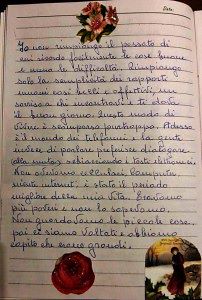 Data:
Io non rimpiango il passato di
cui ricordo facilmente le cose buone
e meno le difficoltà. Rimpiango
solo la semplicità dei rapporti
umani così belli e affettivi, un
sorriso a chi incontravi e ti dava
il buon giorno. Questo modo di
vivere è scomparso purtroppo. Adesso
è il mondo dei telefonini e la gente
invece di parlare preferisce dialogare
(alla muta) schiacciando i tasti elettronici.
Non avevamo cellulari, computer,
niente internet, è stato il periodo
migliore della mia vita. Eravamo
più poveri e non lo sapevamo.
Non guardavamo le piccole cose,
poi ci siamo voltati e abbiamo
capito che erano grandi.